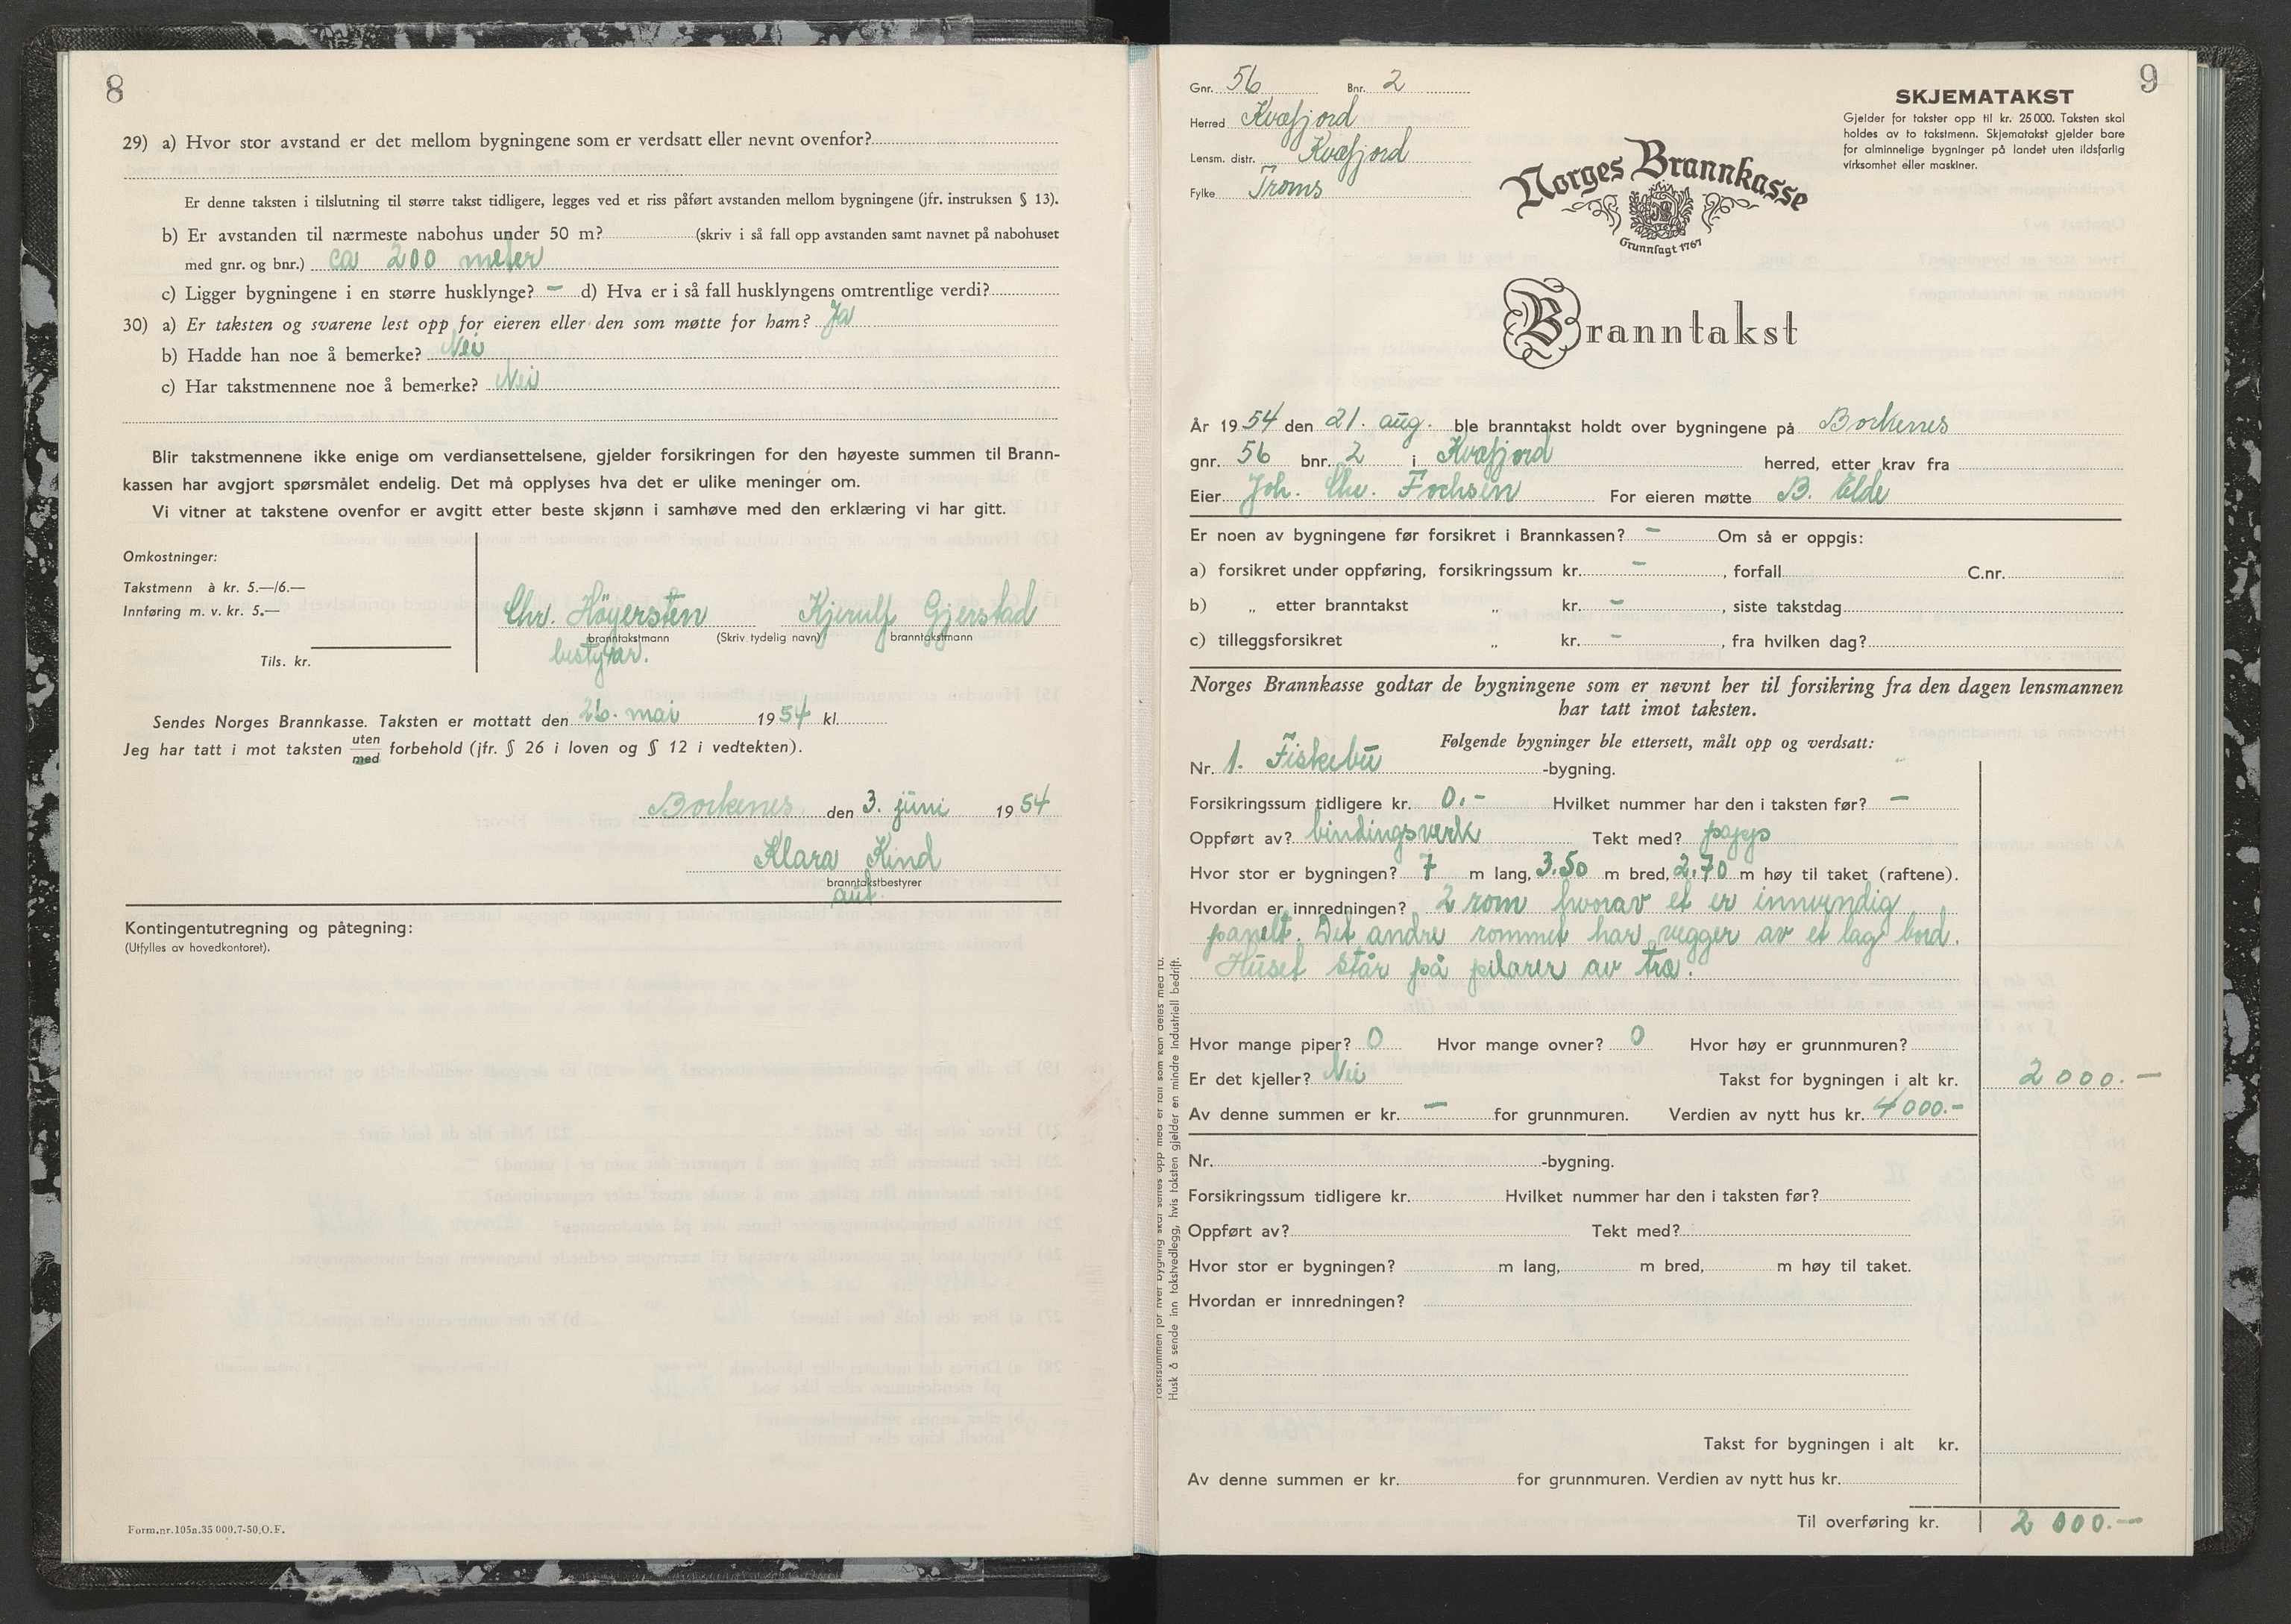 8
29) a) Hvor stor avstand er det mellom bygningene som er verdsatt eller nevnt ovenfor?
Er denne taksten i tilslutning til større takst tidligere, legges ved et riss påført avstanden mellom bygningene (jfr. instruksen § 13).
b) Er avstanden til nærmeste nabohus under 50 m? (skriv i så fall opp avstanden samt navnet på nabohuset
med gnr. og bnr.) ca 200 meter
c) Ligger bygningene i en større husklynge? - d) Hva er i så fall husklyngens omtrentlige verdi?
30) a) Er taksten og svarene lest opp for eieren eller den som møtte for ham? Ja
b) Hadde han noe å bemerke? Nei
c) Har takstmennene noe å bemerke? Nei
Blir takstmennene ikke enige om verdiansettelsene, gjelder forsikringen for den høyeste summen til Brann-
kassen har avgjort spørsmålet endelig. Det må opplyses hva det er ulike meninger om.
Vi vitner at takstene ovenfor er avgitt etter beste skjønn i samhøve med den erklæring vi har gitt.
Omkostninger:
Takstmenn à kr. 5.—/6.—
Innføring m. v. kr. 5.—
Tils. kr.
Chr. Höyersten Kjerulf Gjerstad
branntakstmann (Skriv tydelig navn) branntakstmann
bestyrar.
Sendes Norges Brannkasse. Taksten er mottatt den 26. mai 1954 kl.
Jeg har tatt i mot taksten uten med forbehold (jfr. § 26 i loven og § 12 i vedtekten).
Borkenes den 3. juni 1954
Klara Kind
branntakstbestyrer
aut.
Kontingentutregning og påtegning:
(Utfylles av hovedkontoret).
Form.nr.105a.35 000.7-50.O.F.
9
Gnr. 56 Bnr. 2
Herred Kvæfjord
Lensm. distr. Kvæfjord
Fylke Troms
SKJEMATAKST
Gjelder for takster opp til kr. 25 000. Taksten skal
holdes av to takstmenn. Skjematakst gjelder bare
for alminnelige bygninger på landet uten ildsfarlig
virksomhet eller maskiner.
Norges Brannkasse
Grunnlagt 1767
Branntakst
År 1954 den 21. aug. ble branntakst holdt over bygningene på Borkenes
gnr. 56 bnr. 2 i Kvæfjord herred, etter krav fra
Eier Joh. Chr. Fochsen For eieren møtte B. Elde
Er noen av bygningene før forsikret i Brannkassen? - Om så er oppgis:
a) forsikret under oppføring, forsikringssum kr. - , forfall C.nr.
b) „ etter branntakst „ kr. - , siste takstdag
c) tilleggsforsikret „ kr. - , fra hvilken dag?
Norges Brannkasse godtar de bygningene som er nevnt her til forsikring fra den dagen lensmannen
har tatt imot taksten.
Følgende bygninger ble ettersett, målt opp og verdsatt:
Nr. 1. Fiskebu -bygning.
Forsikringssum tidligere kr. 0.- Hvilket nummer har den i taksten før? -
Oppført av? bindingsverk Tekt med? papp
Hvor stor er bygningen? 7 m lang, 3.50 m bred, 2.70 m høy til taket (raftene).
Hvordan er innredningen? 2 rom hvorav et er innvendig
panelt. Det andre rommet har vegger av et lag bord.
Huset står på pilarer av tre.
Hvor mange piper? 0 Hvor mange ovner? 0 Hvor høy er grunnmuren?
Er det kjeller? Nei Takst for bygningen i alt kr. 2 000.-
Av denne summen er kr. - for grunnmuren. Verdien av nytt hus kr. 4 000.-
Nr. -bygning.
Forsikringssum tidligere kr. Hvilket nummer har den i taksten før?
Oppført av? Tekt med?
Hvor stor er bygningen? m lang, m bred, m høy til taket.
Hvordan er innredningen?
Takst for bygningen i alt kr.
Av denne summen er kr. for grunnmuren. Verdien av nytt hus kr.
Til overføring kr. 2 000.-
Husk å sende inn takstvedlegg, hvis taksten gjelder en mindre industriell bedrift.